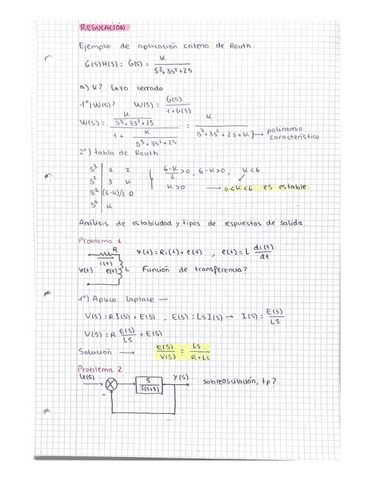 REGULACIÓN
Ejemplo de aplicación criterio de Routh.
G(s)H(s) = G(s) = K / (s³+3s²+2s)
a) K? Lazo cerrado
1º) W(s)? W(s) = G(s) / (1+G(s))
W(s) = (K / (s³+3s²+2s)) / (1 + K / (s³+3s²+2s)) = K / (s³+3s²+2s+K) → polinomio característico
2º) tabla de Routh
s³ | 1 2
s² | 3 K
s¹ | (6-K)/3 0
s⁰ | K
(6-K)/3 >0, 6-K>0, K<6
K>0 → 0<K<6 es estable.
Análisis de estabilidad y tipos de respuestas de salida.
Problema 1
R i(t) v(t) e(t) L
v(t) = Ri(t) + e(t), e(t) = L di(t)/dt
Función de transferencia?
1º) Aplico Laplace →
V(s) = R I(s) + E(s), E(s) = LsI(s) → I(s) = E(s)/Ls
V(s) = R E(s)/Ls + E(s)
Solución → E(s)/V(s) = Ls/(R+Ls)
Problema 2
U(s) Y(s) sobreoscilación, tp?